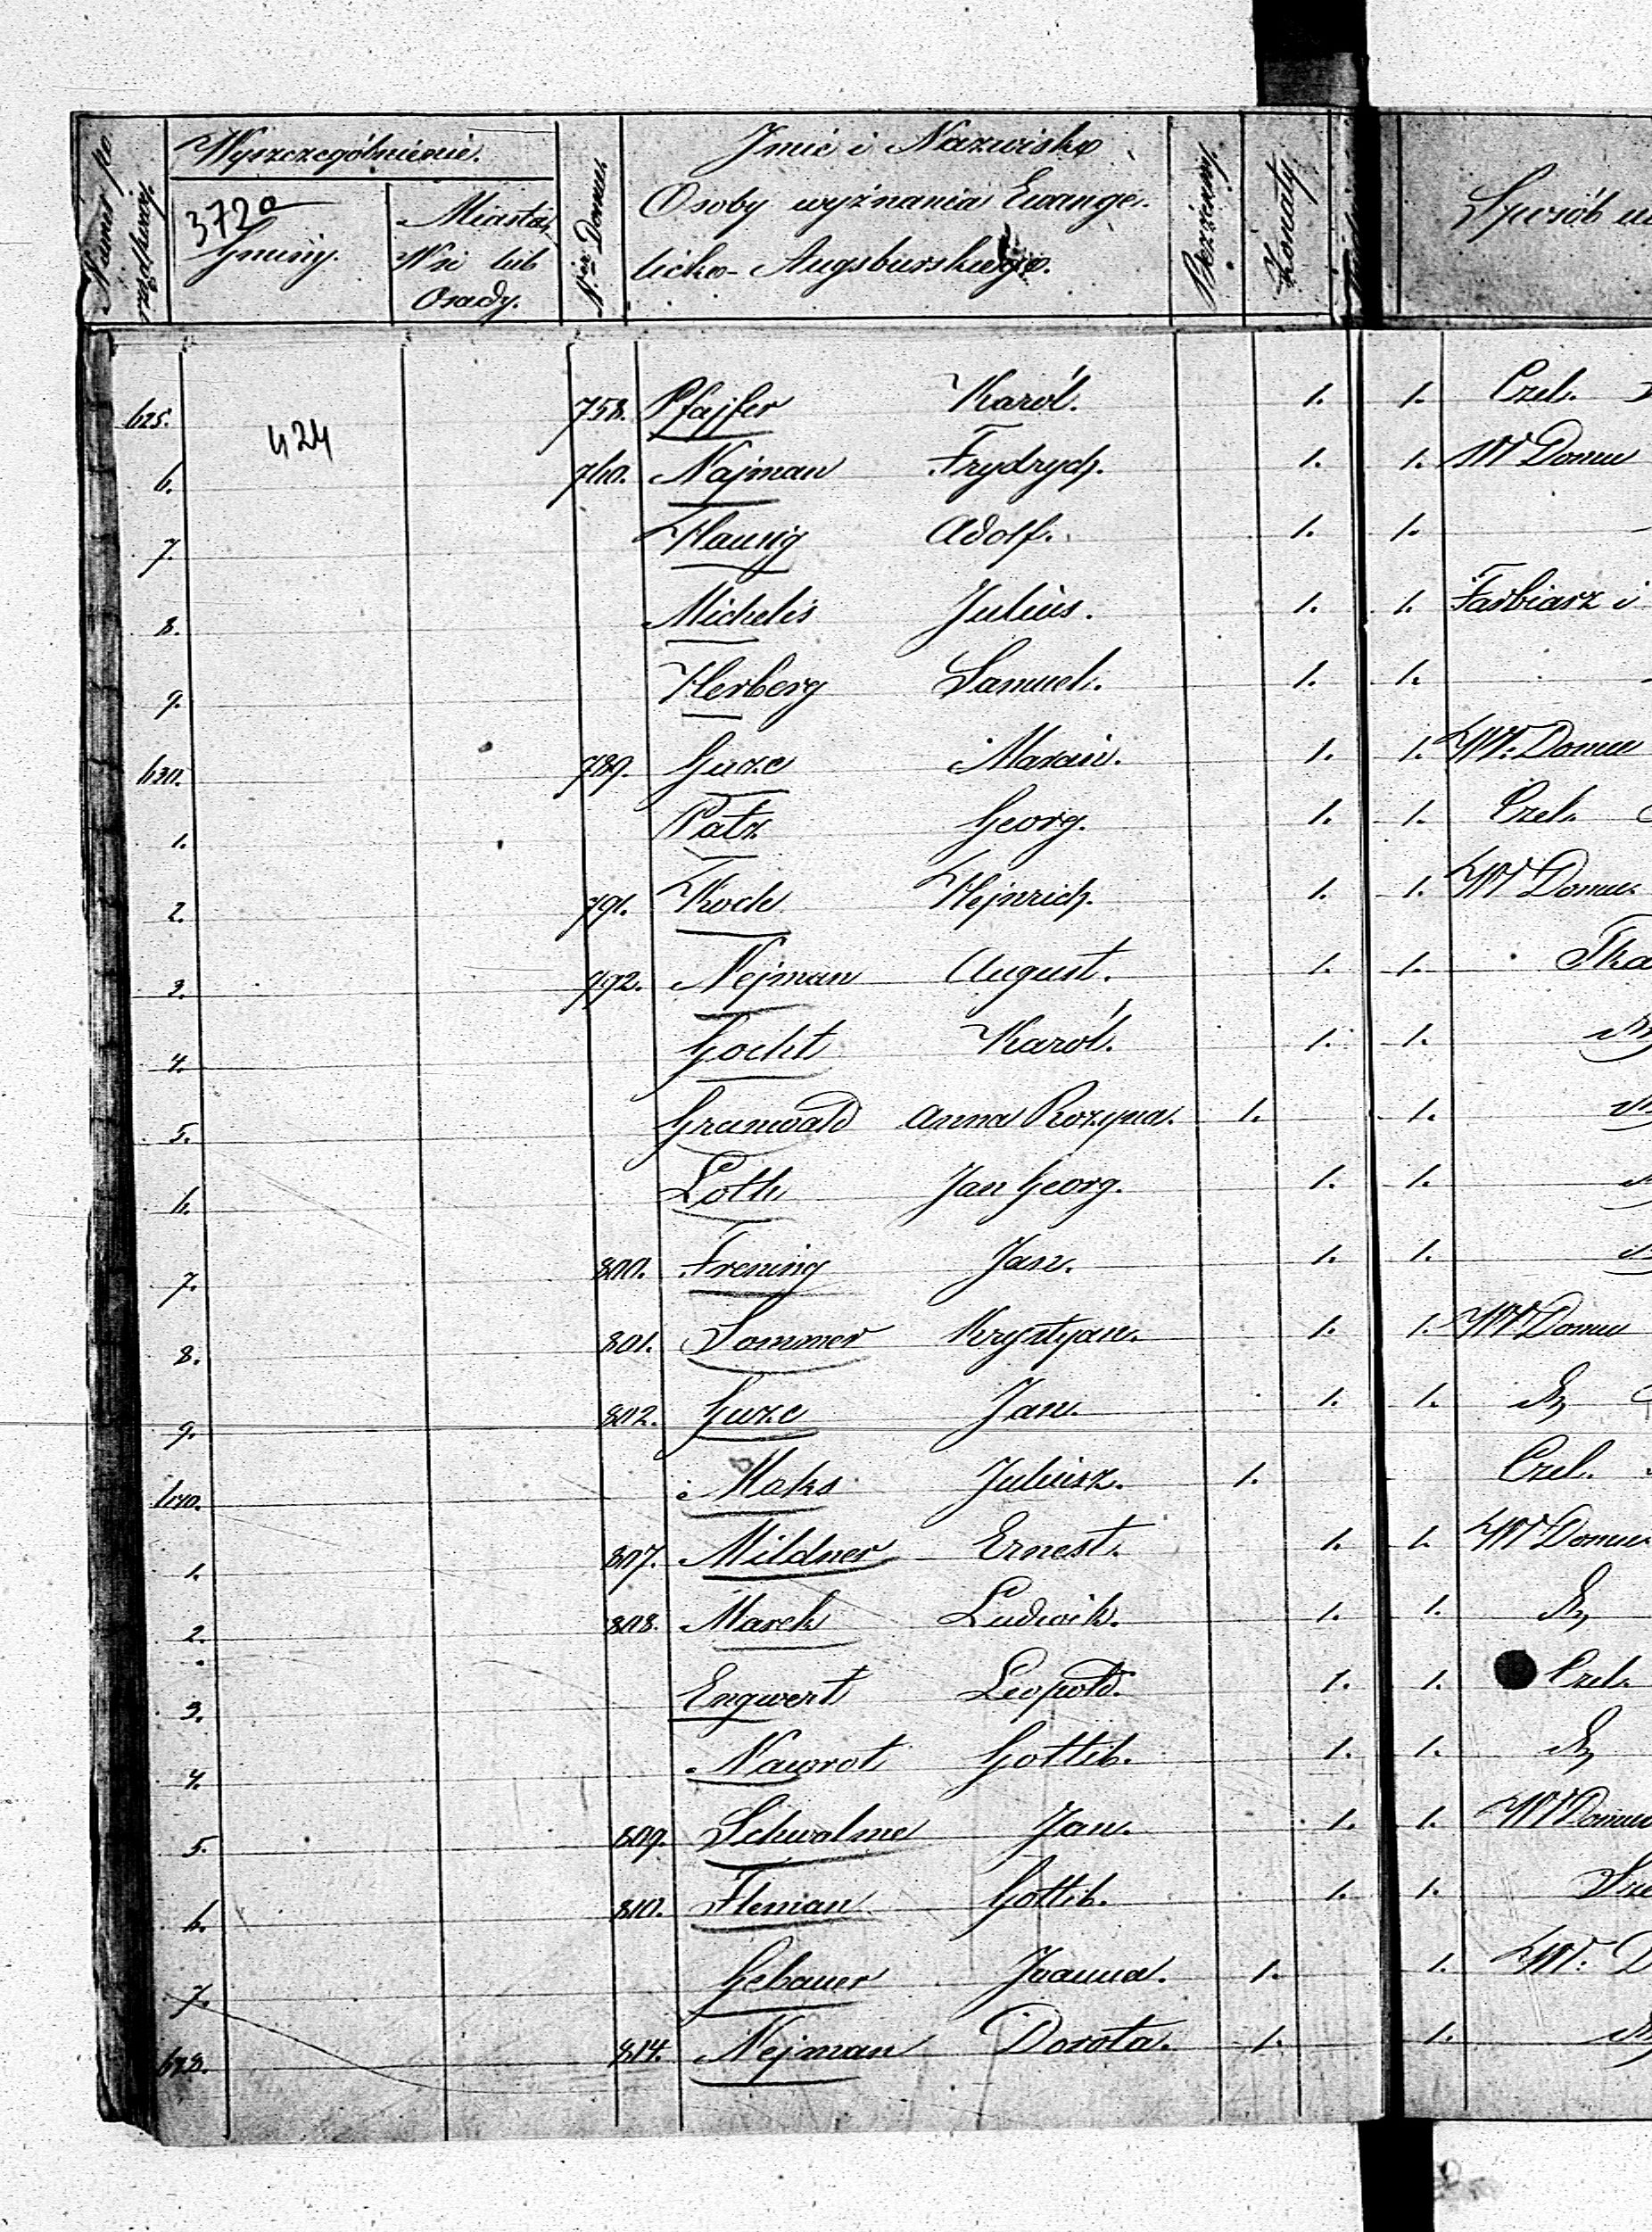 Numer po rządkowy.
Wyszczególnienie.
372a
Gminy.
Miasta,
Wsi lub
Osady.
Nr Domu.
Imie i Nazwisko
Osoby wyznania Ewange-
licko-Augsburskiego.
Bezżenny.
Żonaty.
Sposób
424
625. 758. Pfajfer Karól. 1. 1. Czel.
6. 760. Najman Frydrych. 1. 1. W Domu
7. Haunig Adolf. 1. 1. -
8. Michelis Julius. 1. 1. Farbiarz i
9. Herberg Samuel. 1. 1.
630. 789. Guze Marcin. 1. 1. W. Domu
1. Patz Georg. 1. 1. Czel.
2. 791. Koch Hejnrich. 1. 1. W Domu
3. 792. Nejman August. 1. 1. Tka
4. Gocht Karól. 1. 1.
5. Grunwald Anna Rozyna. 1. 1.
6. Loth Jan Georg. 1. 1.
7. 800. Frening Jan. 1. 1.
8. 801. Sommer Krystyan. 1. 1. W Domu
9. 802. Guze Jan. 1. 1.
640. Maks Juliusz. 1. Czel.
1. 807. Mildner Ernest. 1. 1. W Domu
2. 808. Marek Ludwik. 1. 1.
3. Engwert Leopold. 1. 1. Czel.
4. Nawrot Gottlib. 1. 1.
5. 809. Schwalme Jan. 1. 1. W Domu
6. 810. Flemian Gottlib. 1. 1.
7. Gebauer Joanna. 1. 1. W. D
648. 814. Nejman Dorota. 1. 1.